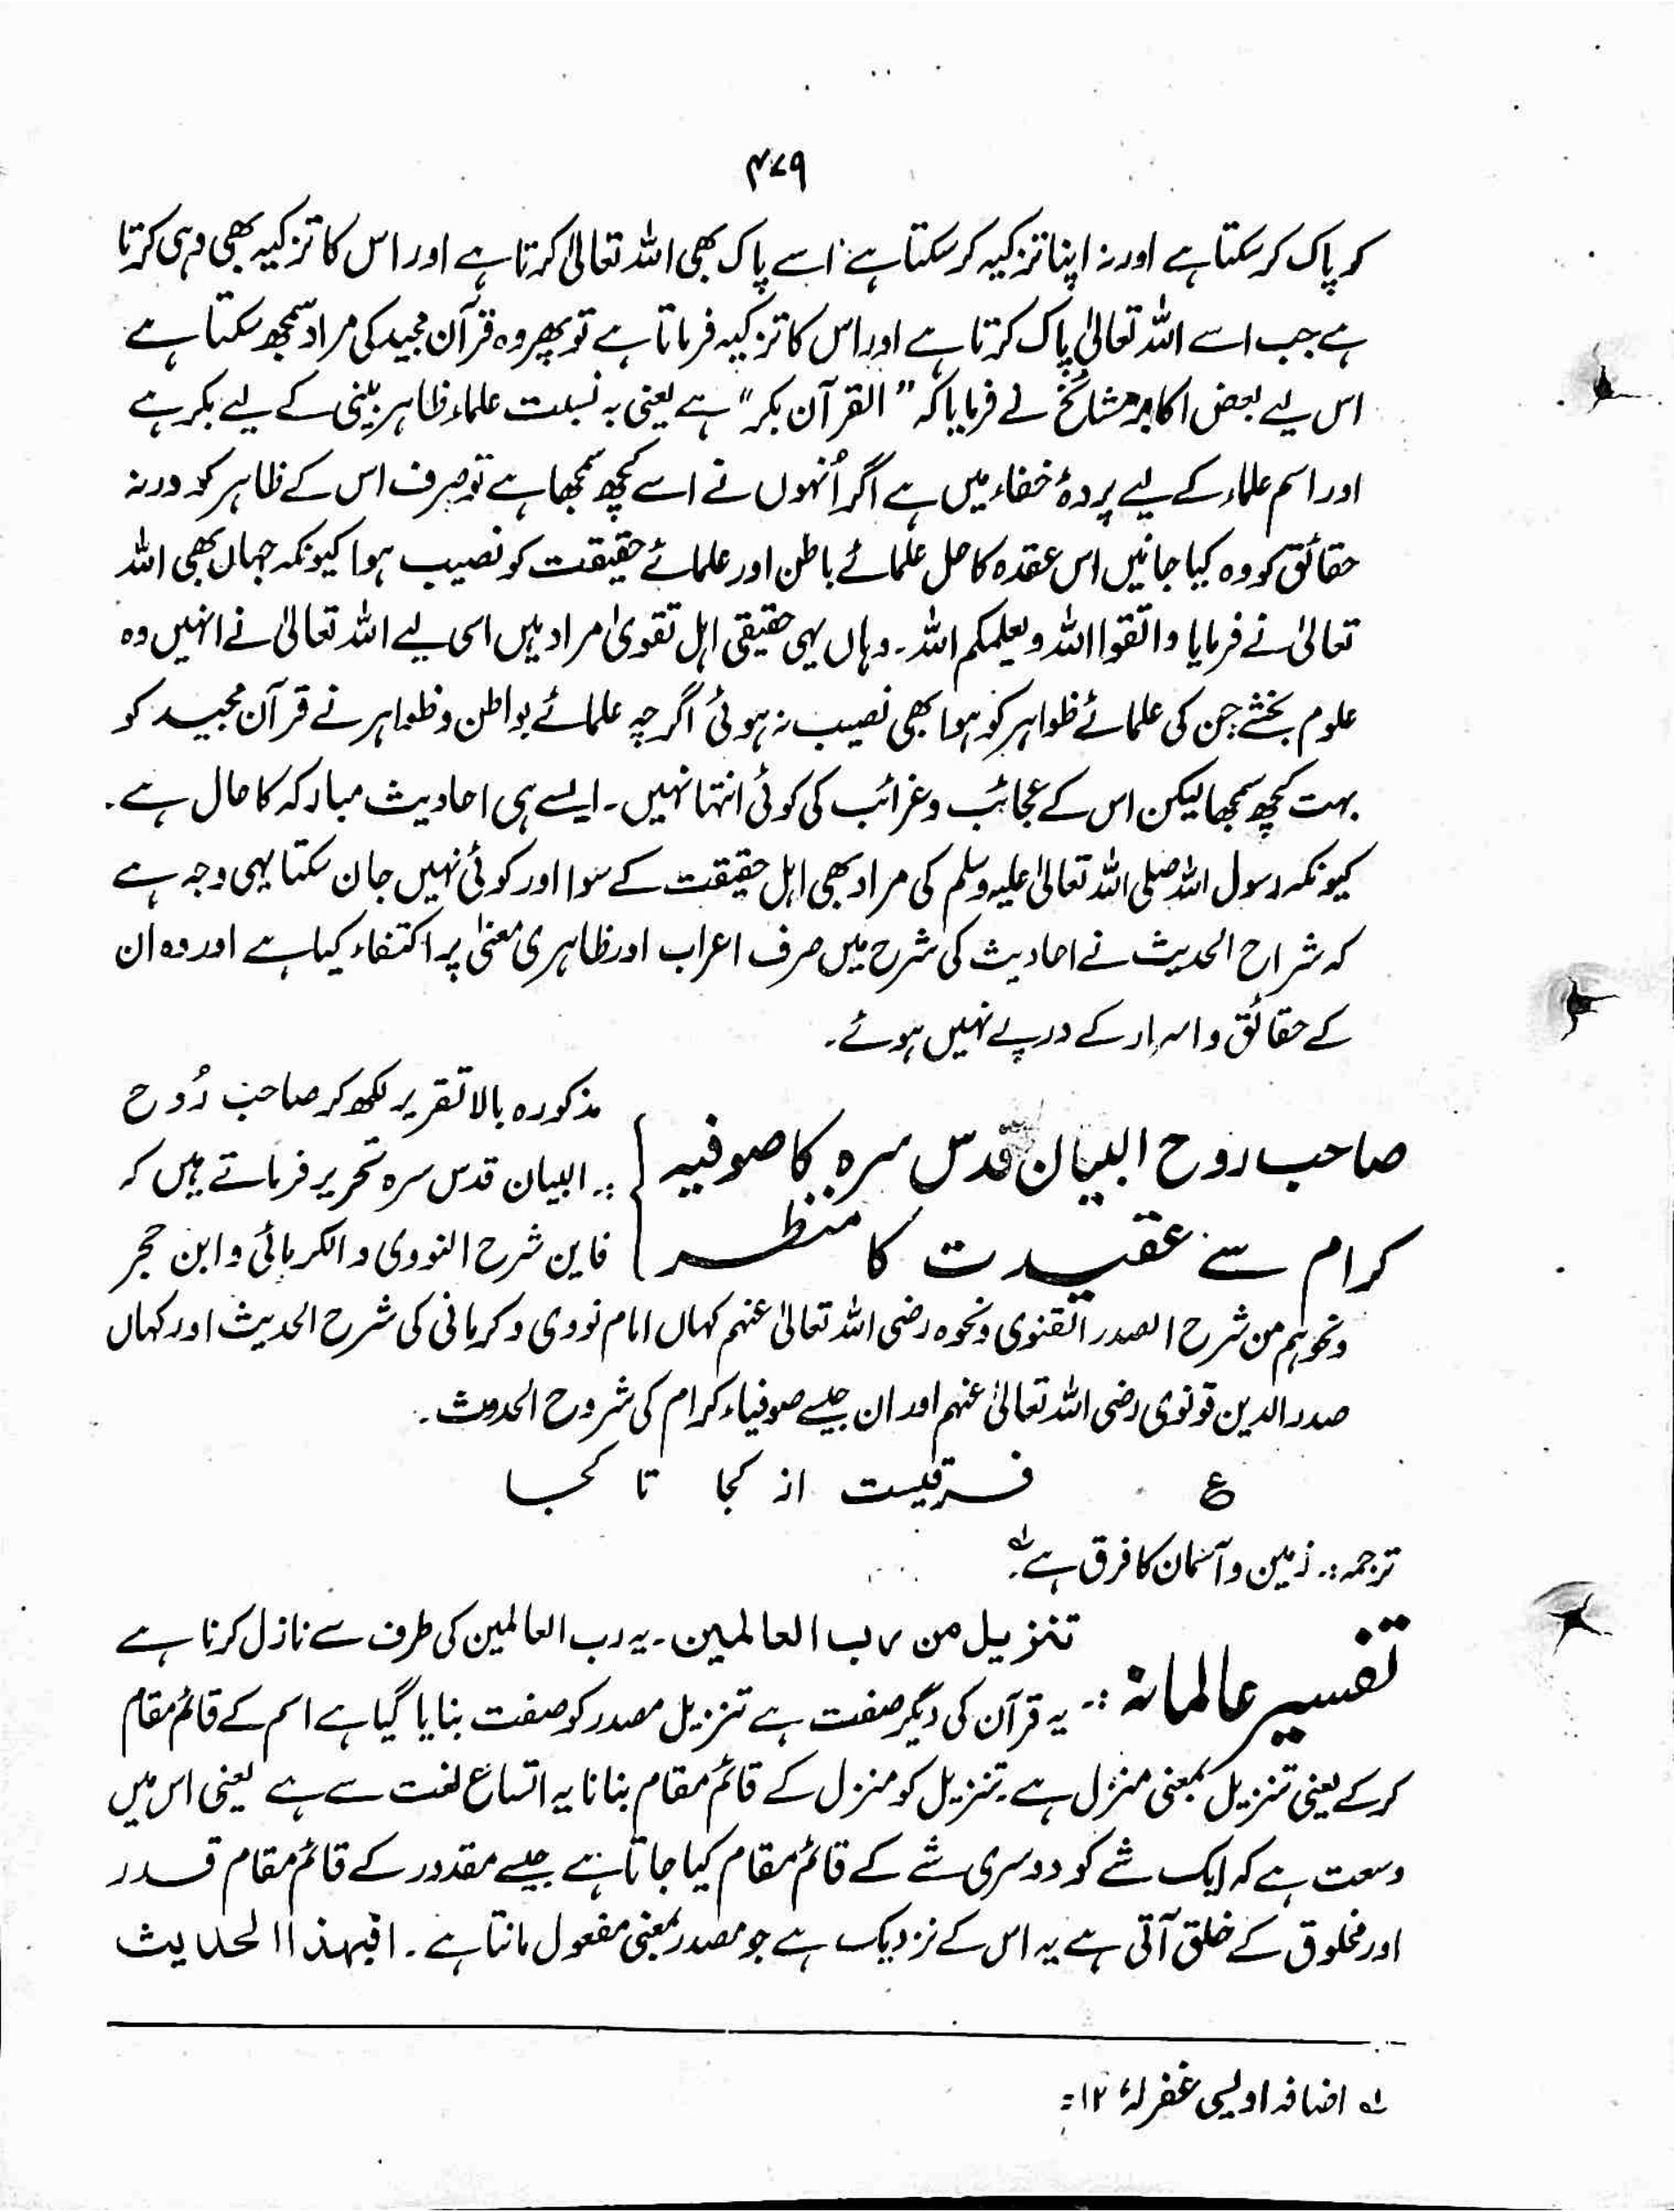 ۴۷۹
کو پاک کر سکتا ہے اور نہ اپنا تزکیہ کر سکتا ہے اسے پاک بھی اللہ تعالیٰ کرتا ہے اور اس کا تزکیہ بھی وہی کرتا
ہے جب اسے اللہ تعالیٰ پاک کرتا ہے اور اس کا تزکیہ فرماتا ہے تو پھر وہ قرآن مجید کی مراد سمجھ سکتا ہے
اس لیے بعض اکابر مشائخ نے فرمایا کہ ”القرآن بکر“ ہے یعنی بہ نسبت علماء ظاہر بینی کے لیے بکر ہے
اور اسم علماء کے لیے پردۂ خفاء میں ہے اگر اُنہوں نے اسے کچھ سمجھا ہے تو صرف اس کے ظاہر کو ورنہ
حقائق کو وہ کیا جانیں اس عقدہ کا حل علمائے باطن اور علمائے حقیقت کو نصیب ہوا کیونکہ جہاں بھی اللہ
تعالیٰ نے فرمایا واتقوا اللہ ویعلمکم اللہ۔ وہاں یہی حقیقی اہل تقویٰ مراد ہیں اسی لیے اللہ تعالیٰ نے انہیں وہ
علوم بخشے جن کی علمائے ظواہر کو ہوا بھی نصیب نہ ہوئی اگرچہ علمائے بواطن و ظواہر نے قرآن مجید کو
بہت کچھ سمجھا لیکن اس کے عجائب و غرائب کی کوئی انتہا نہیں۔ ایسے ہی احادیث مبارکہ کا حال ہے۔
کیونکہ رسول اللہ صلی اللہ تعالیٰ علیہ وسلم کی مراد بھی اہل حقیقت کے سوا اور کوئی نہیں جان سکتا یہی وجہ ہے
کہ شراح الحدیث نے احادیث کی شرح میں صرف اعراب اور ظاہری معنیٰ پر اکتفاء کیا ہے اور وہ ان
کے حقائق و اسرار کے درپے نہیں ہوئے۔
صاحب روح البیان قدس سرہ کا صوفیہ
کرام سے عقیدت کا منظر
مذکورہ بالا تقریر لکھ کر صاحب رُوح
:۔ البیان قدس سرہ تحریر فرماتے ہیں کہ
فاین شرح النووی و الکرمانی و ابن حجر
ونحوہم من شرح الصدر القنوی ونحوہ رضی اللہ تعالیٰ عنہم کہاں امام نووی و کرمانی کی شرح الحدیث اور کہاں
صدر الدین قونوی رضی اللہ تعالیٰ عنہم اور ان جیسے صوفیاء کرام کی شروح الحدیث۔
ع فرقیست از کجا تا کجا
ترجمہ:۔ زمین و آسمان کا فرق ہے۔ لہ
تفسیر عالمانہ :۔
تنزیل من رب العالمین۔ یہ رب العالمین کی طرف سے نازل کرنا ہے
یہ قرآن کی دیگر صفت ہے تنزیل مصدر کو صفت بنایا گیا ہے اسم کے قائم مقام
کر کے یعنی تنزیل بمعنی منزل ہے۔ تنزیل کو منزل کے قائم مقام بنانا یہ اتساع لغت سے ہے یعنی اس میں
وسعت ہے کہ ایک شے کو دوسری شے کے قائم مقام کیا جاتا ہے جیسے مقدور کے قائم مقام قدر
اور مخلوق کے خلق آتی ہے یہ اس کے نزدیک ہے جو مصدر بمعنی مفعول مانتا ہے۔ افبھذا الحدیث
لہ اضافہ اویسی غفرلہٗ ۱۲=